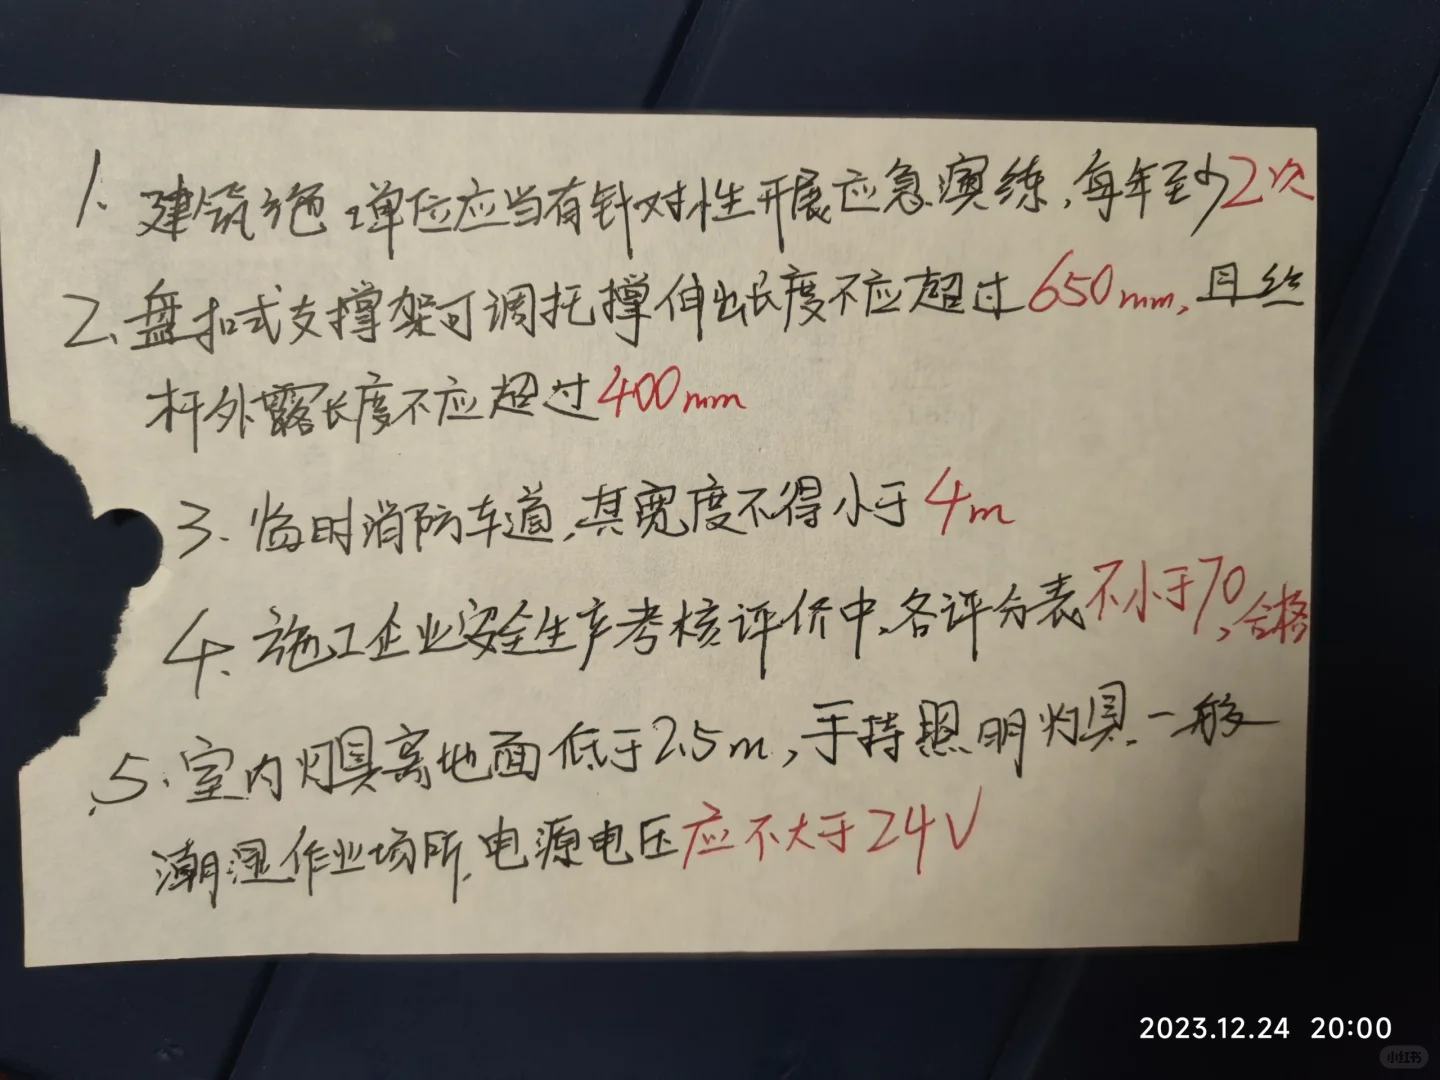 1. 建筑施工单位应当有针对性开展应急演练,每年至少2次
2、盘扣式支撑架可调托撑伸出长度不应超过650mm,且丝
杆外露长度不应超过400mm
3. 临时消防车道,其宽度不得小于4m
4、施工企业安全生产考核评价中、各评分表不小于70,合格
5、室内灯具离地面低于2.5m,手持照明灯具、一般
潮湿作业场所、电源电压应不大于24V
2023.12.24 20:00
小红书